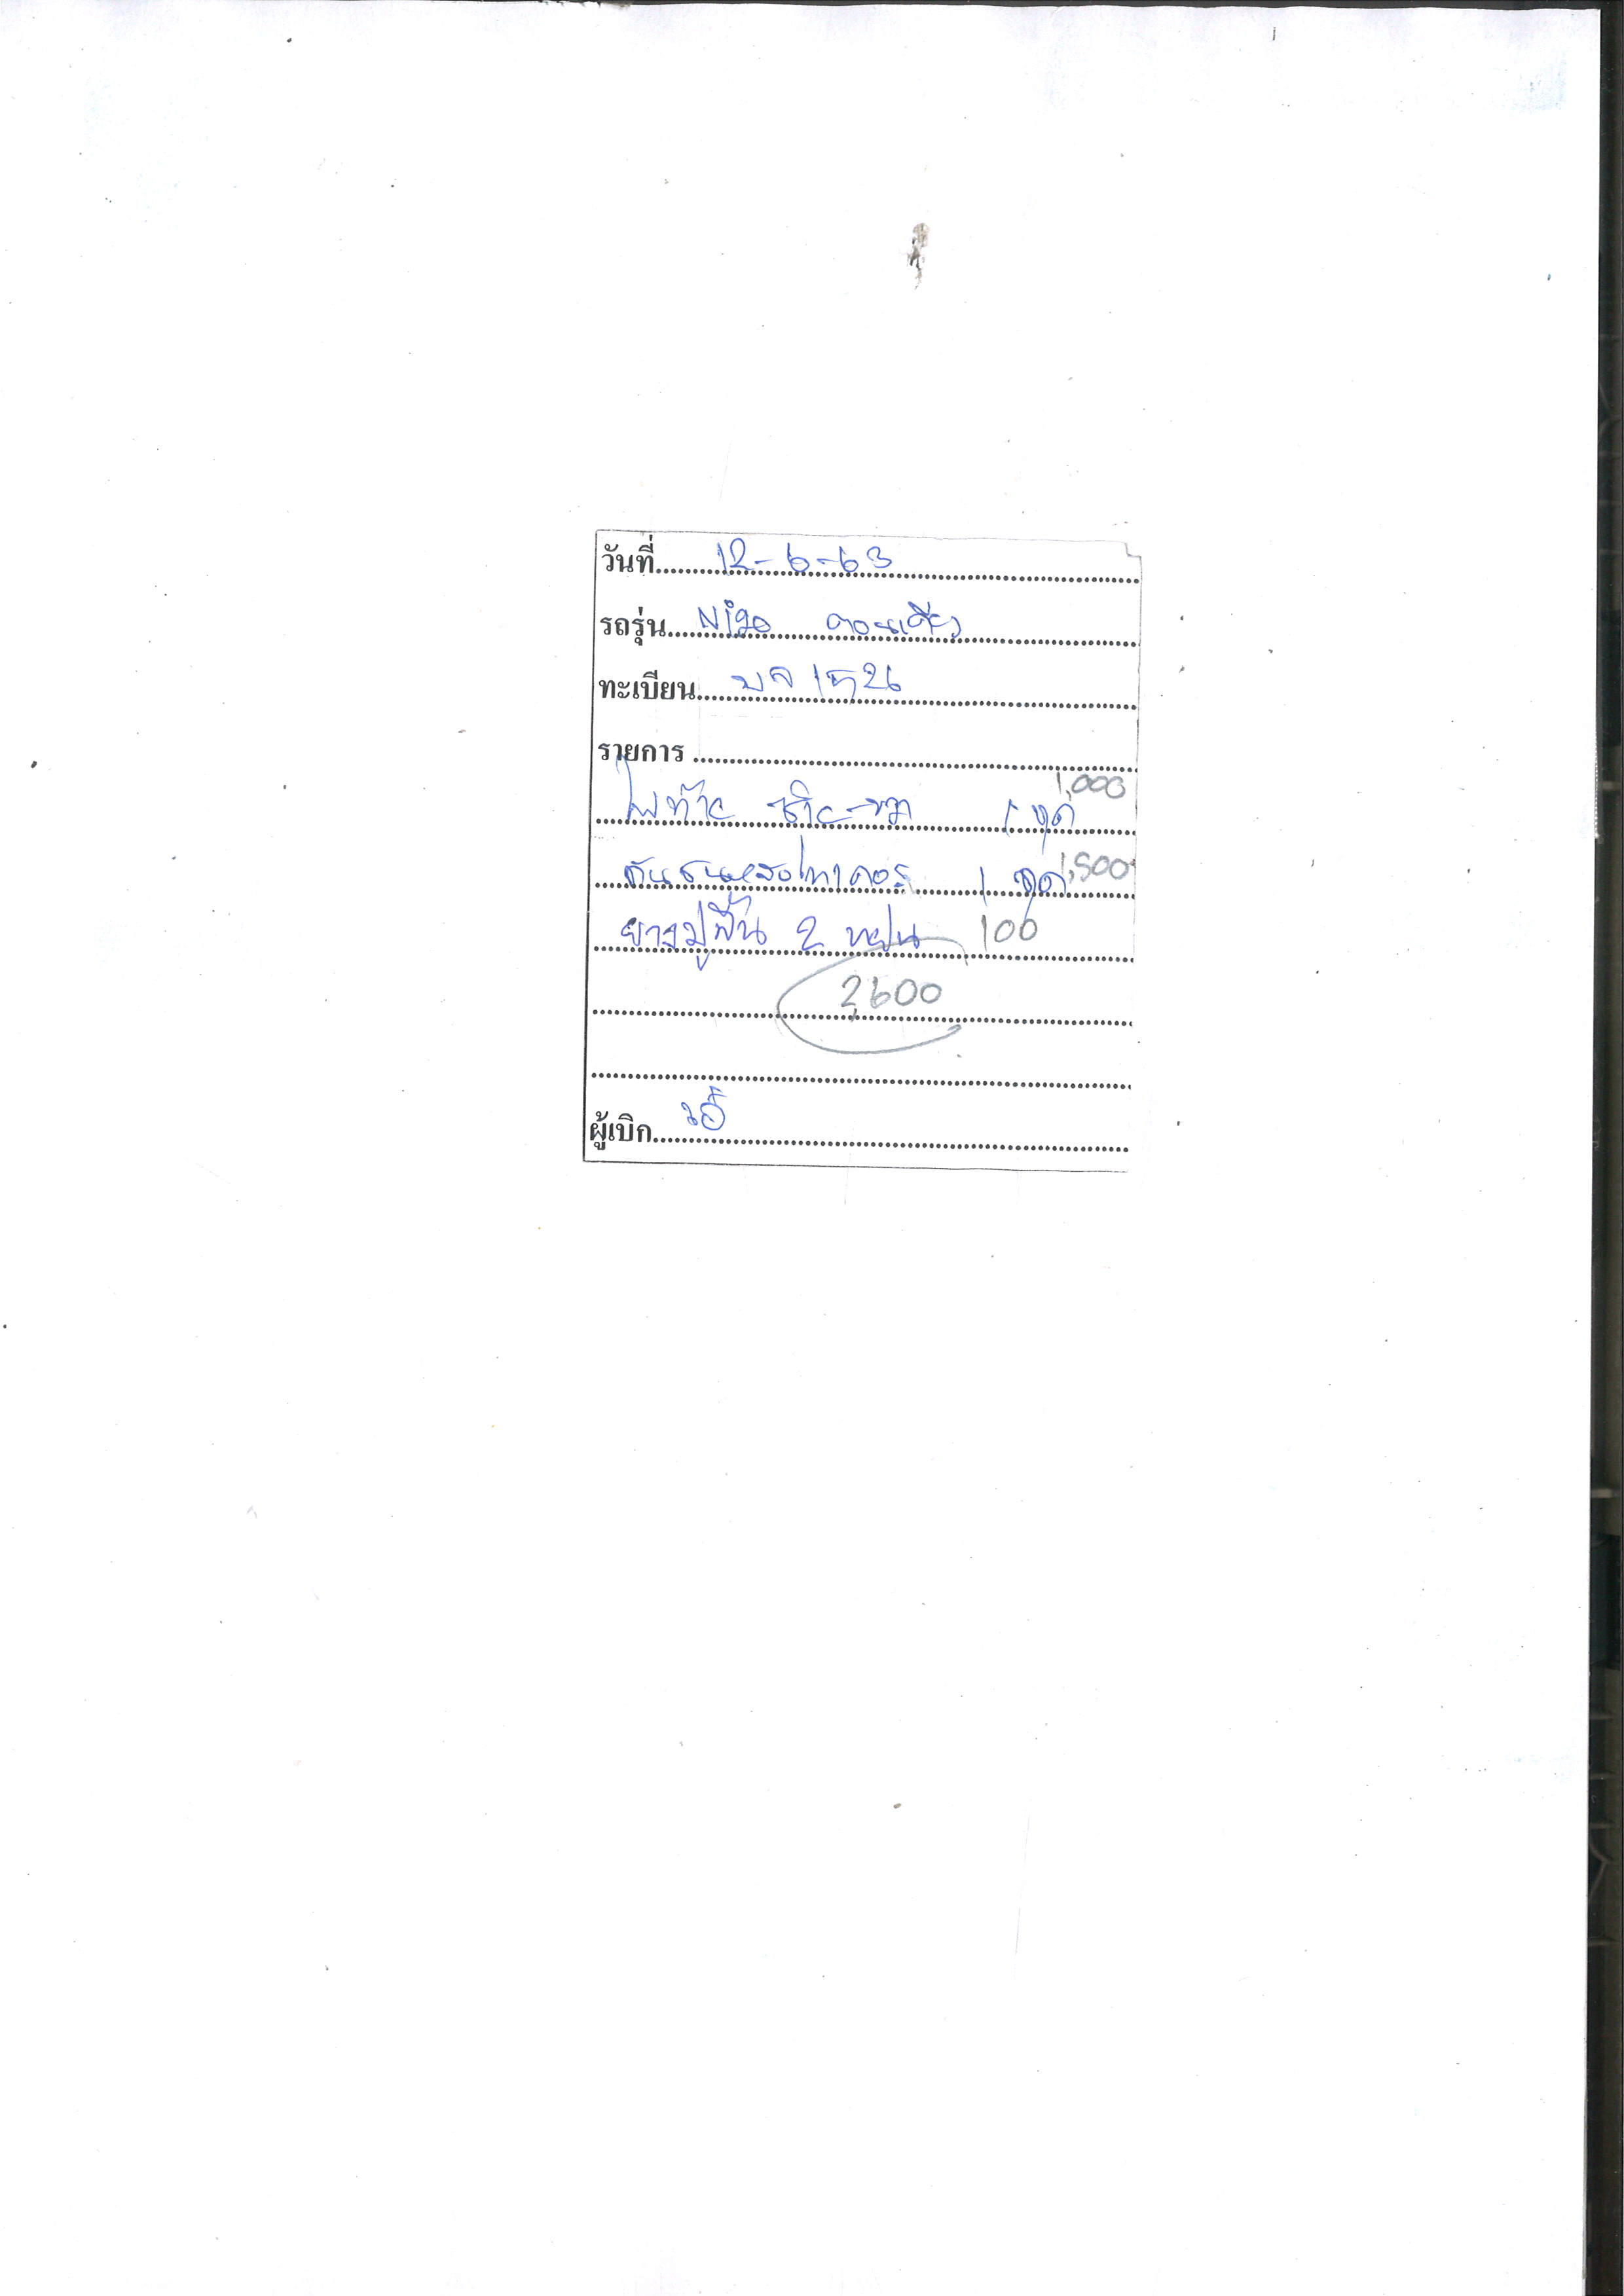 วันที่ 12-6-63
รถรุ่น Nigo ตอนเดียว
ทะเบียน บจ 1526
รายการ
1,000
ไฟท้าย ซ้าย-ขวา 1 ชุด
กันชนหลัง 1 ชุด 1,500
ยางปูพื้น 2 แผ่น 100
2,600
ผู้เบิก